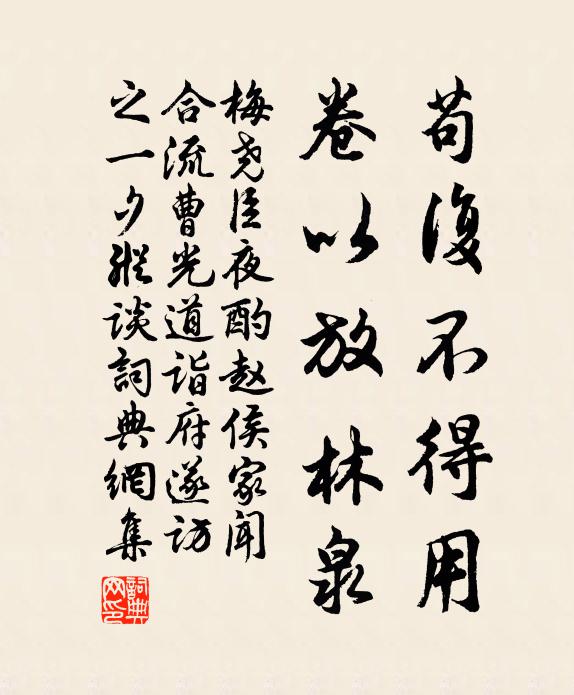 苟復不得用
卷以放林泉
梅尧臣夜酌赵侯家闻
合流曹光道诣府遂访
之一夕縱談詞典網集
詞典
网印